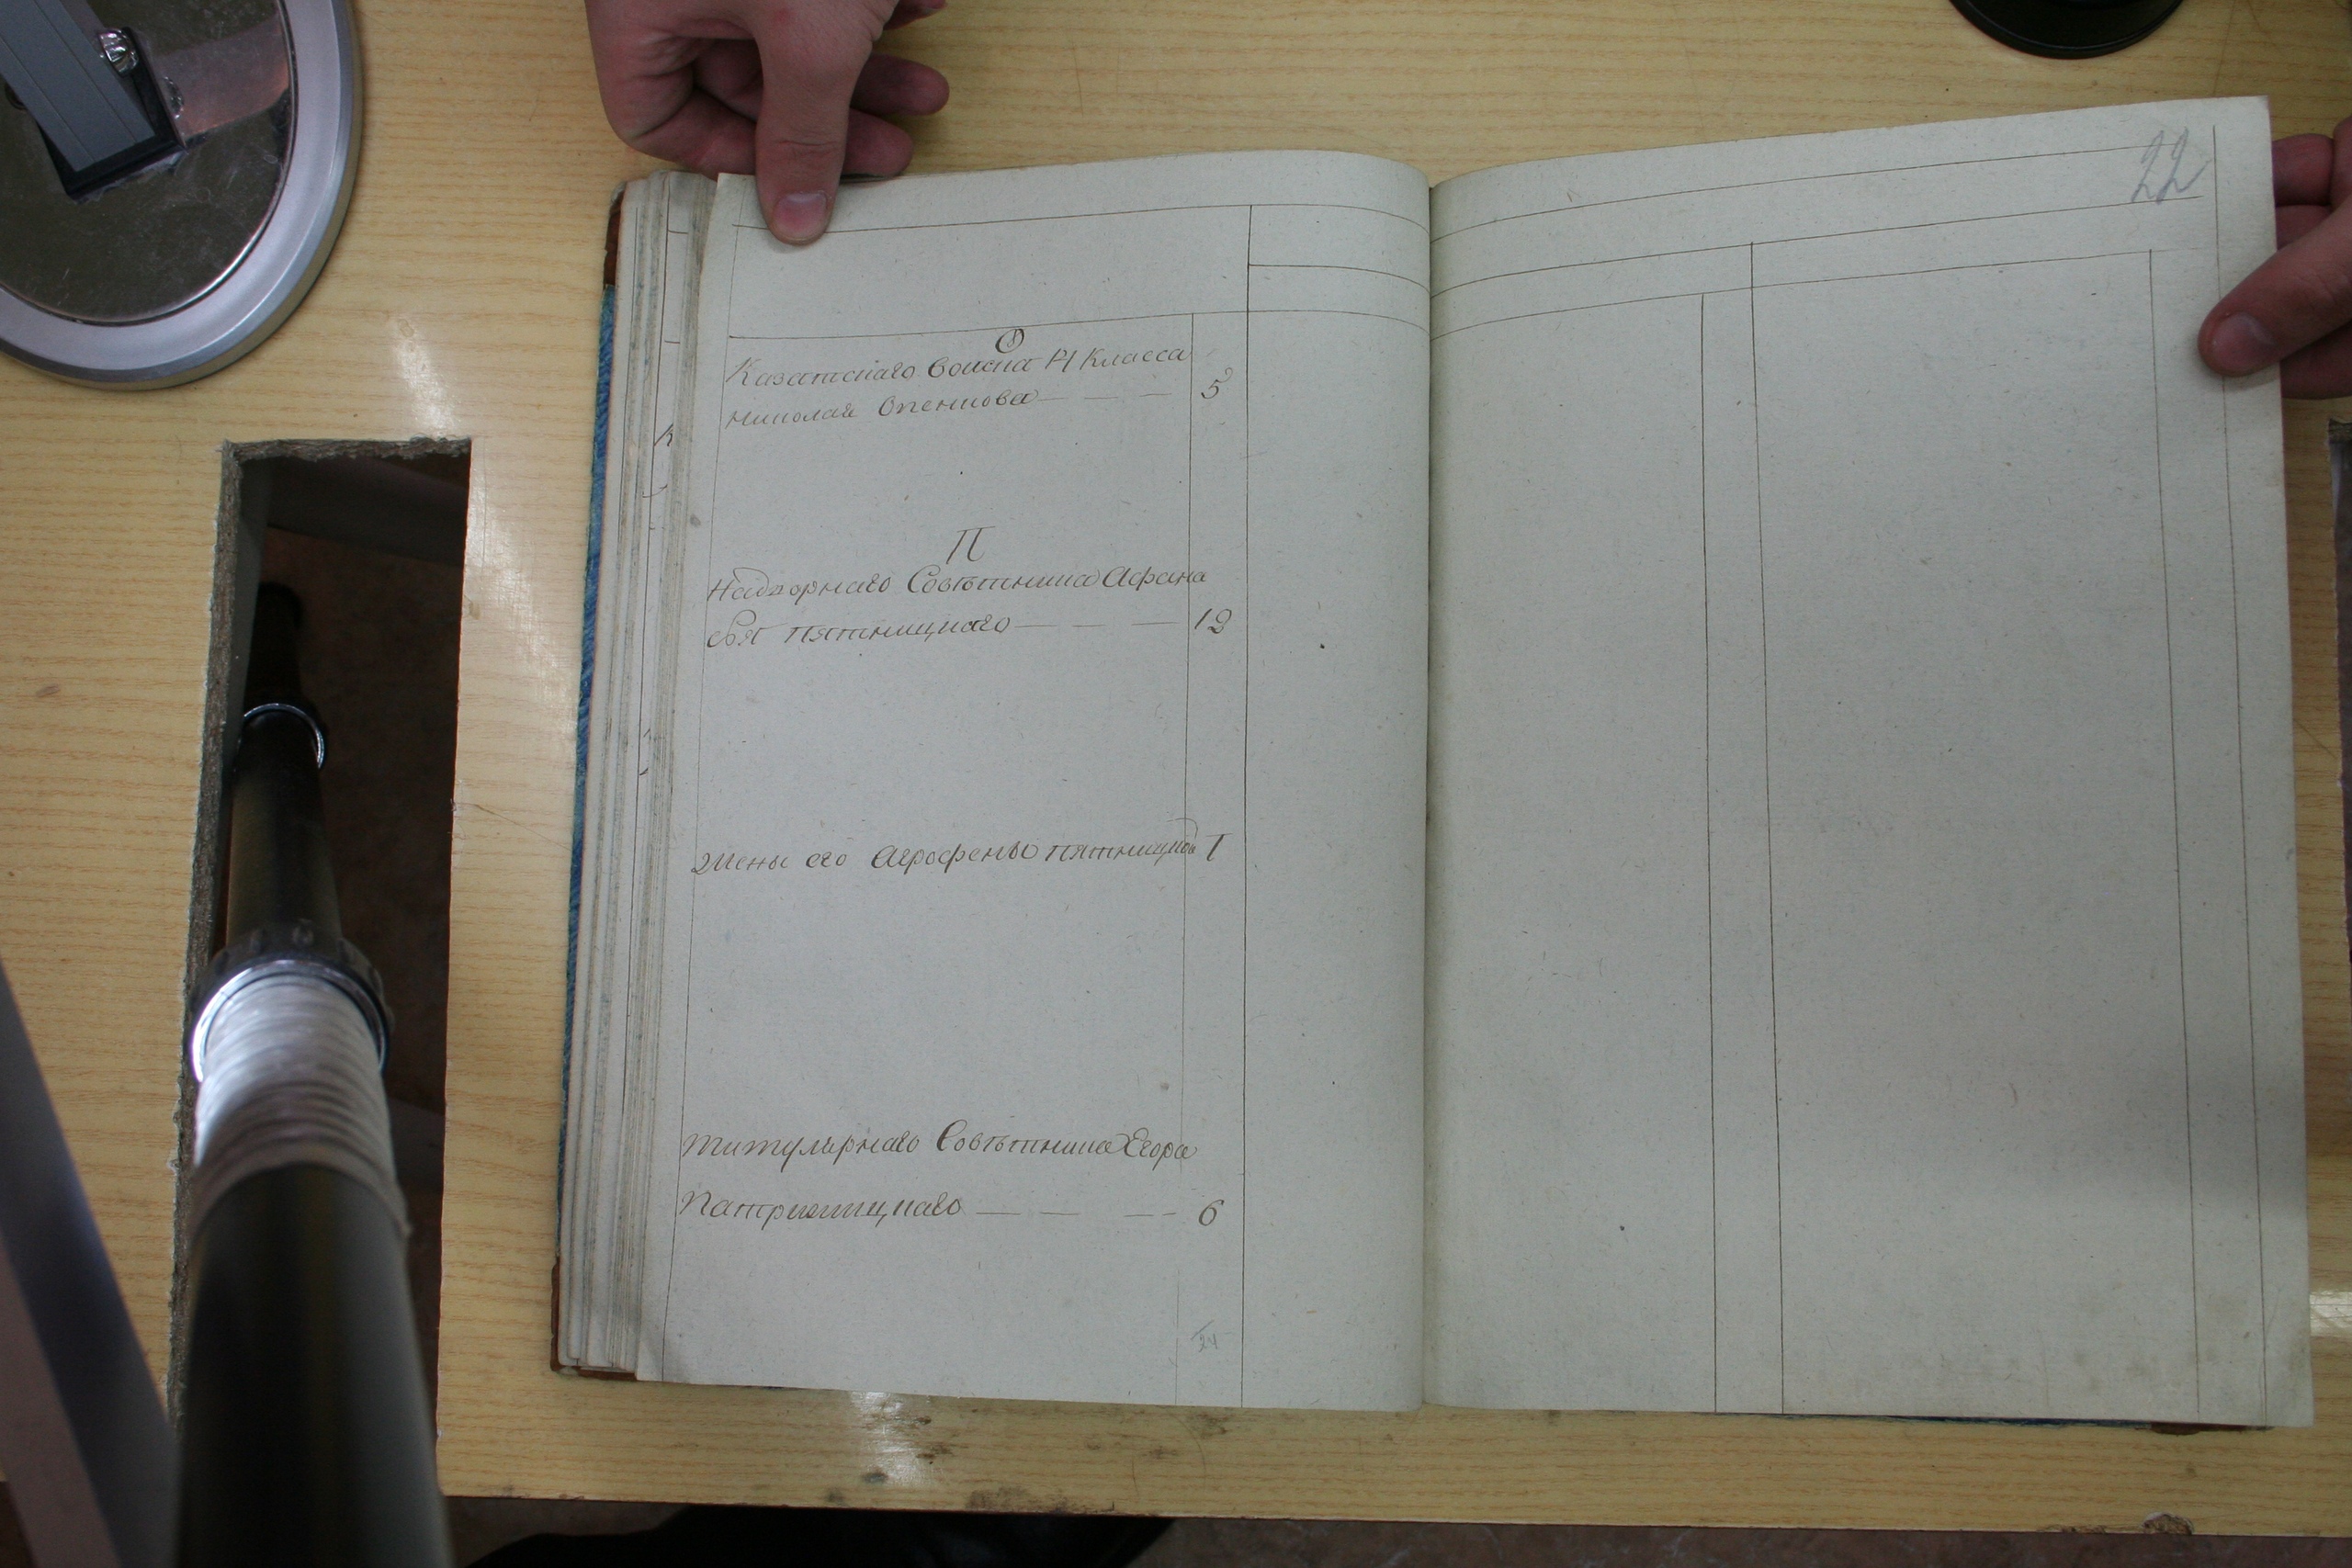 22
О
Казатскаго воиска 14 класса
Николая Опенкова — — — 5
П
Надворнаго Советника Афана
сья Пятницкаго — — — 12
Жены его Аграфены Пятницкой 1
Титулярнаго Советника Егора
Патрицкаго — — — 6
24